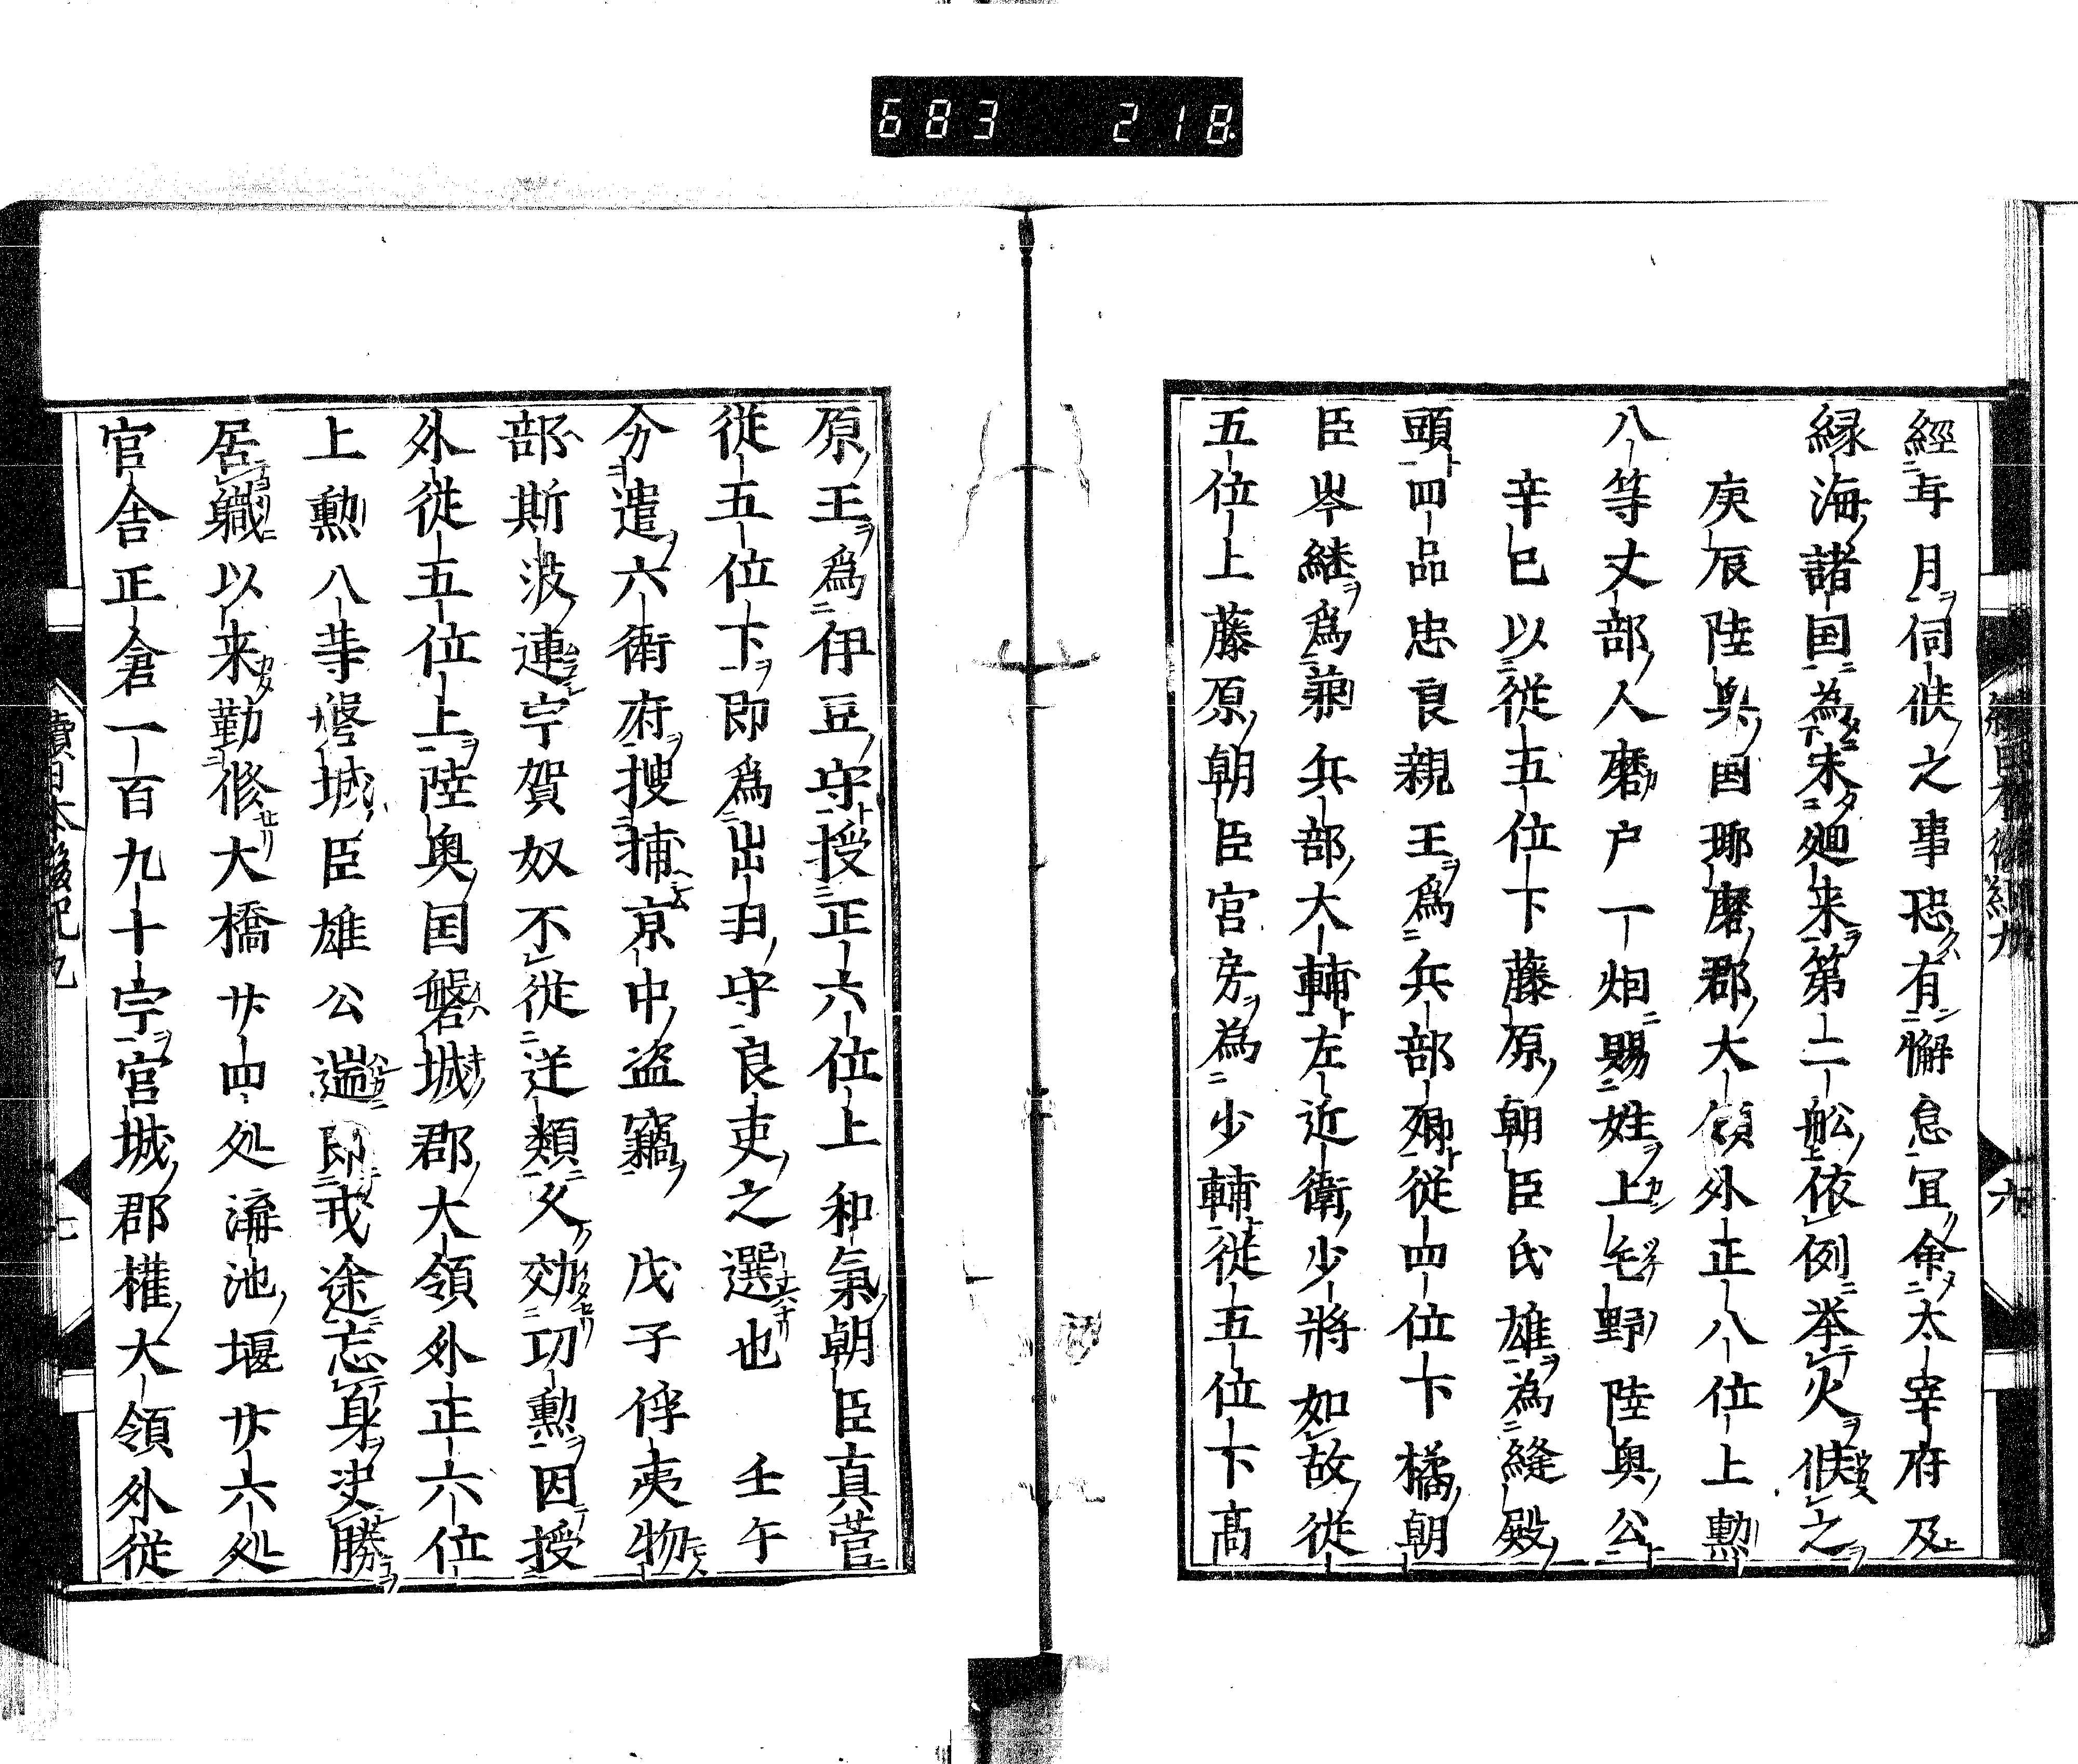 683 218
經年月伺候之事恐有懈怠宜命太宰府及
縁海諸国為未廻来第二舩依例挙火候之
庚辰陸奥国耶磨郡大領外正八位上勲
八等丈部人磨户一烟賜姓上毛野陸奥公
辛巳以從五位下藤原朝臣氏雄為縫殿
頭四品忠良親王爲兵部卿從四位下橘朝
臣岑継爲兼兵部大輔左近衛少將如故從
五位上藤原朝臣宮房為少輔從五位下高
原王爲伊豆守授正六位上和氣朝臣真菅
從五位下即爲出羽守良吏之選也 壬午
分遣六衛府搜捕京中盗竊 戊子俘夷物
部斯波連宇賀奴不從逆類久効功勲因授
外從五位上陸奥国磐城郡大領外正六位
上勲八等磐城臣雄公遄即戎途忘身決勝
居職以来勤修大橋廿四处溝池堰廿六处
官舎正倉一百九十宇宮城郡權大領外從
續日本後紀九
六
七